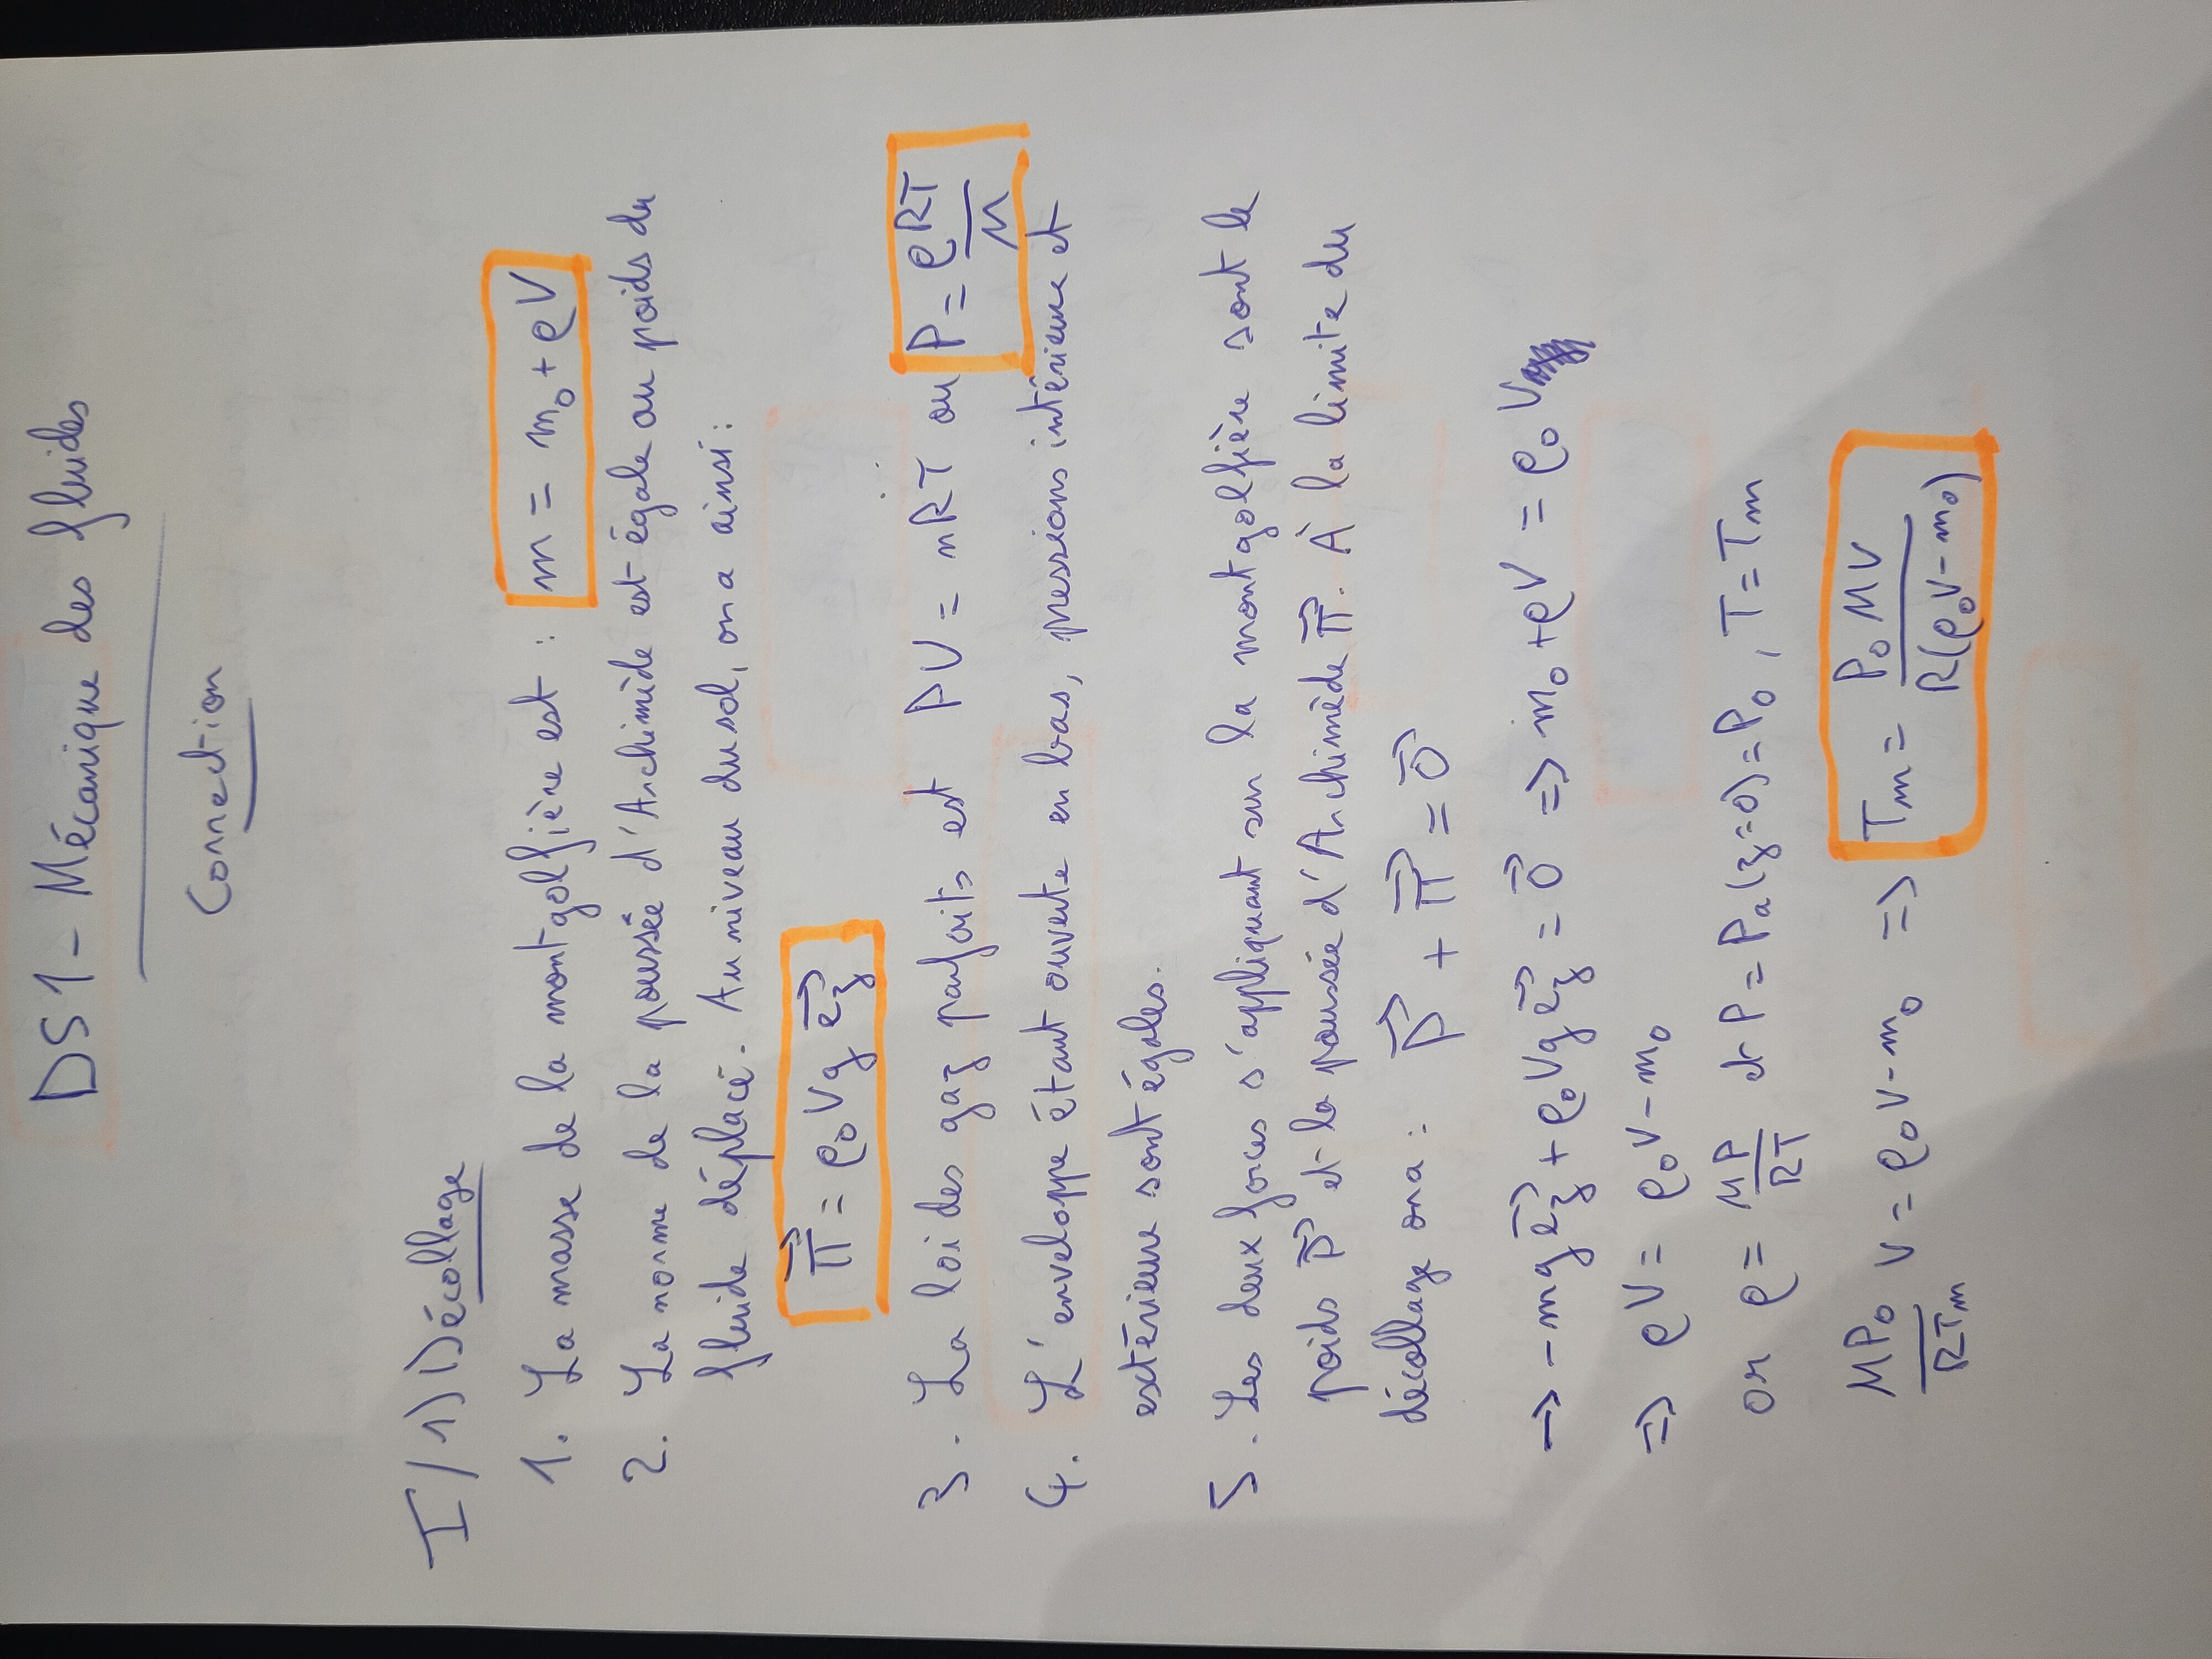 DS1 - Mécanique des fluides
Correction
I/1) Décollage
1. La masse de la montgolfière est : m = m₀ + ρV
2. La norme de la poussée d'Archimède est égale au poids du
fluide déplacé. Au niveau du sol, on a ainsi :
π⃗ = ρ₀Vg e⃗z
3. La loi des gaz parfaits est PV = nRT ou P = ρRT/M
4. L'enveloppe étant ouverte en bas, pressions intérieure et
extérieure sont égales.
5. Les deux forces s'appliquant sur la montgolfière sont le
poids P⃗ et la poussée d'Archimède π⃗. À la limite du
décollage on a : P⃗ + π⃗ = 0⃗
=> -mg e⃗z + ρ₀Vg e⃗z = 0⃗ => m₀ + ρV = ρ₀V
=> ρV = ρ₀V - m₀
or ρ = MP/RT et P = Pa(z=0) = P₀, T = Tm
MP₀/RTm V = ρ₀V - m₀ => Tm = P₀MV/R(ρ₀V - m₀)